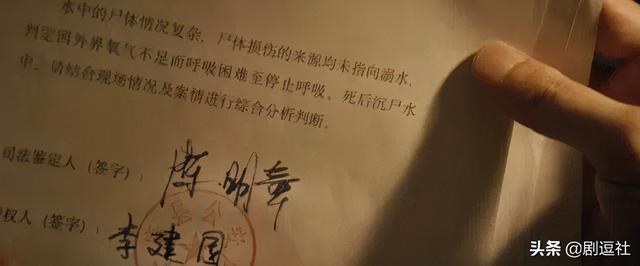 水中的尸体情况复杂，尸体损伤的来源均未指向溺水，
判定因外界氧气不足而呼吸困难至停止呼吸。死后沉尸水
中。请结合现场情况及案情进行综合分析判断。
司法鉴定人（签字）：陈明章
权人（签字）：李建国
头条 @剧逗社